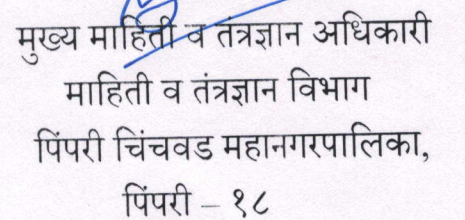 मुख्य माहिती व तंत्रज्ञान अधिकारी
माहिती व तंत्रज्ञान विभाग
पिंपरी चिंचवड महानगरपालिका,
पिंपरी – १८